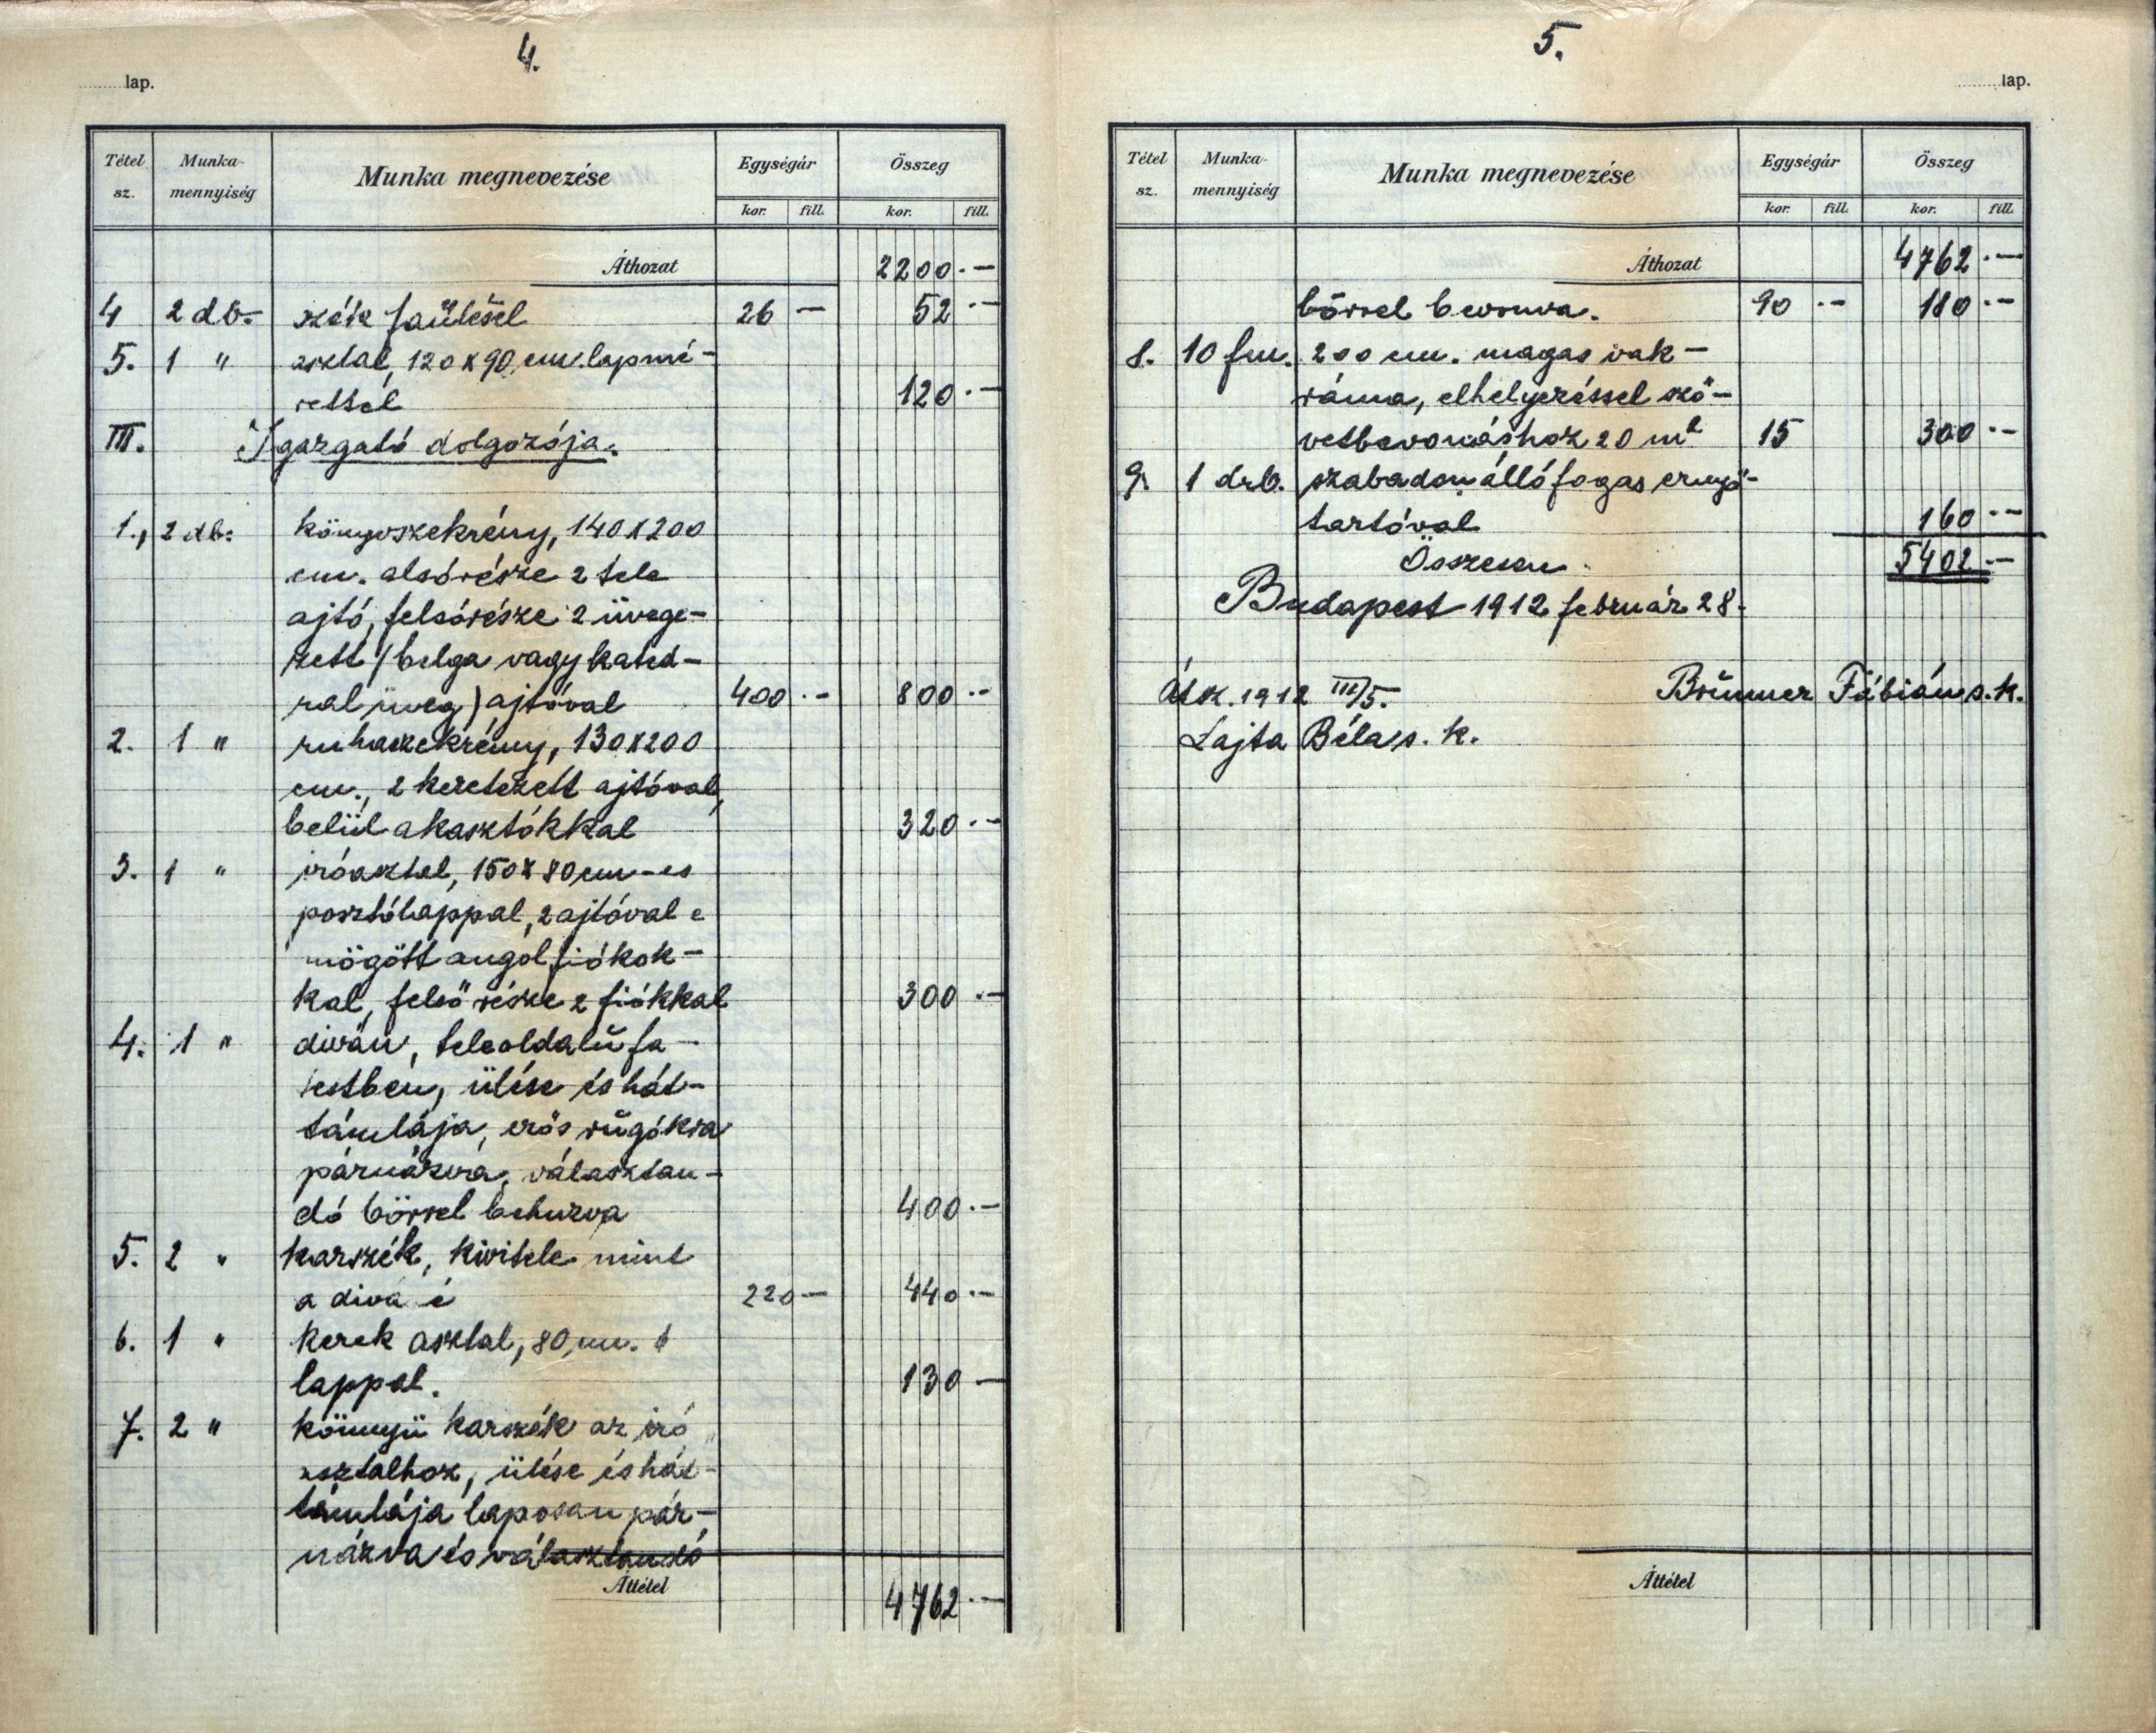 4.
lap.
Tétel sz. Munka-mennyiség Munka megnevezése Egységár kor. fill. Összeg kor. fill.
Áthozat 2200.—
4 2 db. szék faüléssel 26 — 52.—
5. 1 " asztal, 120x90 cm. lapmé-
rettel 120.—
III. Igazgató dolgozója.
1., 2 db. könyvszekrény, 140x200
cm. alsórésze 2 tele
ajtó, felsőrésze 2 üvege-
zett (belga vagy kated-
ral üveg) ajtóval 400.— 800.—
2. 1 " ruhaszekrény, 130x200
cm., 2 keretezett ajtóval,
belül akasztókkal 320.—
3. 1 " íróasztal, 150x80 cm-es
posztólappal, 2 ajtóval e
mögött angol fiókok-
kal, felső része 2 fiókkal 300.—
4. 1 " diván, teleoldalú fa-
testben, ülése és hát-
támlája, erős rugókra
párnázva, választan-
dó bőrrel behuzva 400.—
5. 2 " karszék, kivitele mint
a divá é 220— 440.—
6. 1 " kerek asztal, 80 cm.
lappal. 130—
7. 2 " könnyü karszék az iró
asztalhoz, ülése és hát-
támlája laposan pár-
názva és választandó
Áttétel 4762.—
5.
lap.
Tétel sz. Munka-mennyiség Munka megnevezése Egységár kor. fill. Összeg kor. fill.
Áthozat 4762.—
bőrrel bevonva. 90.— 180.—
8. 10 fm. 200 cm. magas vak-
ráma, elhelyezéssel szö-
vetbevonáshoz 20 m² 15 300.—
9. 1 drb. szabadon álló fogas ernyő-
tartóval 160.—
Összesen 5402.—
Budapest 1912 február 28.
Átsz. 1912 III/5. Brünner Fábián s. k.
Lajta Béla s. k.
Áttétel